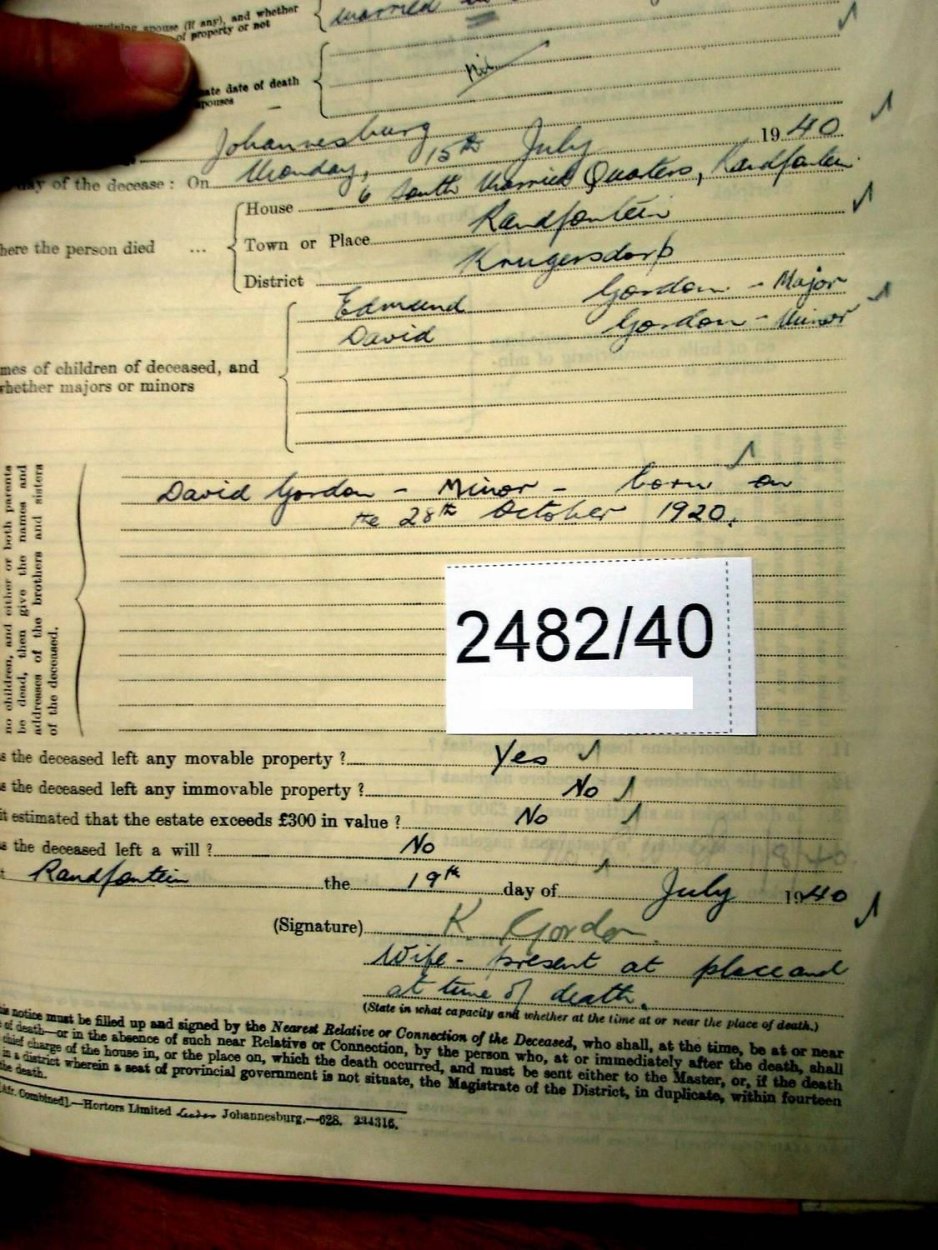 rviving spouse (if any), and whether married in
of property or not
ate date of death Nil
spouses
Johannesburg
day of the decease: On Monday, 15th July 1940
House 6 South Married Quarters, Randfontein.
here the person died ... Town or Place Randfontein
District Krugersdorp
Edmund Gordon - Major
David Gordon - Minor
mes of children of deceased, and
whether majors or minors
no children, and either or both parents
be dead, then give the names and
addresses of the brothers and sisters
of the deceased.
David Gordon - Minor - born on
the 28th October 1920.
2482/40
s the deceased left any movable property ? Yes
s the deceased left any immovable property ? No
it estimated that the estate exceeds £300 in value ? No
s the deceased left a will ? No
t Randfontein the 19th day of July 1940
(Signature) K. Gordon.
Wife - present at place and
at time of death.
(State in what capacity and whether at the time at or near the place of death.)
his notice must be filled up and signed by the Nearest Relative or Connection of the Deceased, who shall, at the time, be at or near
of death—or in the absence of such near Relative or Connection, by the person who, at or immediately after the death, shall
chief charge of the house in, or the place on, which the death occurred, and must be sent either to the Master, or, if the death
in a district wherein a seat of provincial government is not situate, the Magistrate of the District, in duplicate, within fourteen
the death.
[Afr. Combined].—Hortors Limited Johannesburg.—628. 234316.